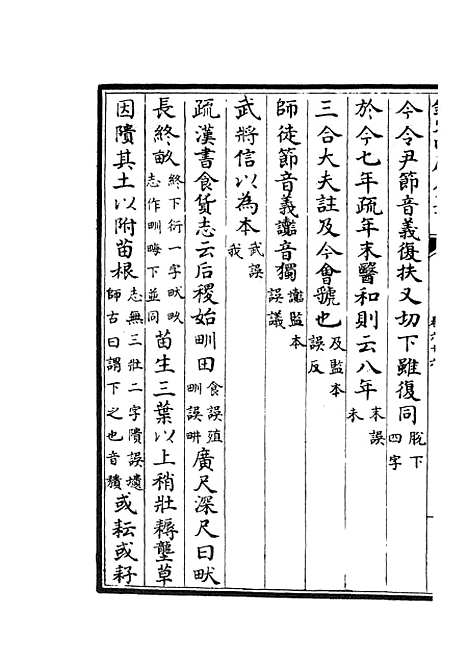 今令尹節音義復扶又切下雖復同脫下四字
於今七年疏年末醫和則云八年末誤未
三合大夫註及今會虢也及監本誤反
師徒節音義讟音獨讟監本誤議
武將信以為本武誤我
疏漢書食貨志云后稷始甽田食誤殖甽誤畊廣尺深尺曰畎
長終畝終下衍一字畎畝志作甽晦下並同苗生三葉以上稍壯耨壟草
因隤其土以附苗根志無三壯二字隤誤壝師古曰謂下之也音穨或耘或耔